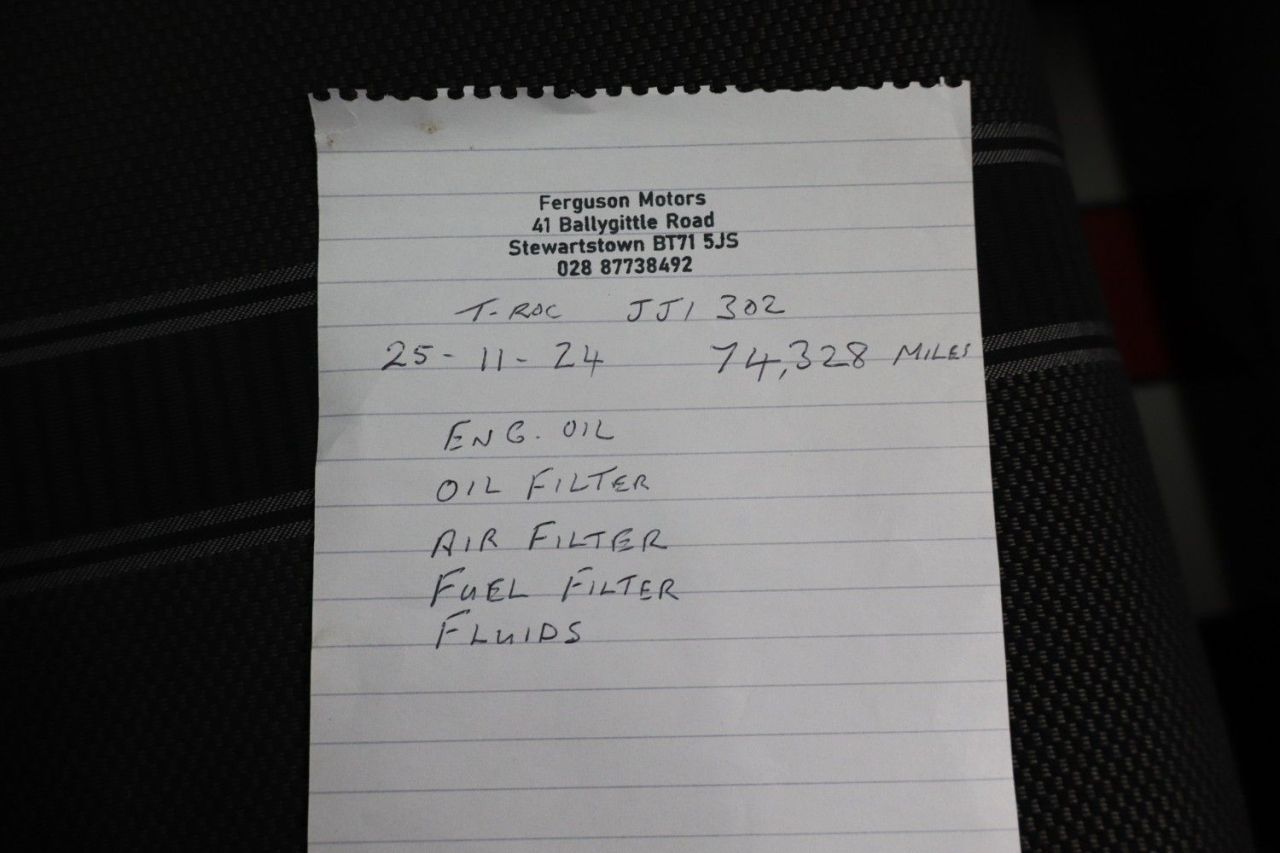 Ferguson Motors
41 Ballygittle Road
Stewartstown BT71 5JS
028 87738492
T-ROC JJI 302
25-11-24 74,328 MILES
ENG. OIL
OIL FILTER
AIR FILTER
FUEL FILTER
FLUIDS